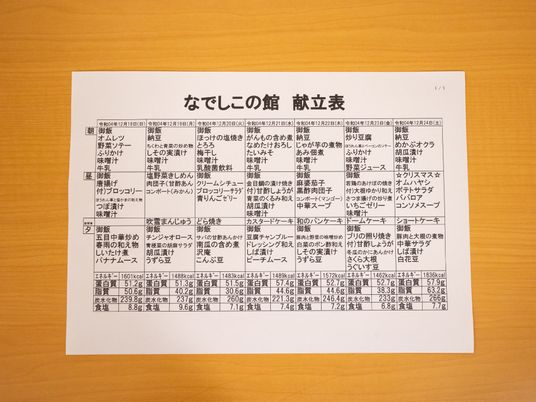 1 / 1
なでしこの館 献立表
令和04年12月18日(日) 令和04年12月19日(月) 令和04年12月20日(火) 令和04年12月21日(水) 令和04年12月22日(木) 令和04年12月23日(金) 令和04年12月24日(土)
朝 御飯 御飯 御飯 御飯 御飯 御飯 御飯
オムレツ 納豆 ほっけの塩焼き がんもの含め煮 納豆 炒り豆腐 めかぶオクラ
野菜ソテー ちくわと青菜の炒め物 とろろ なめたけおろし じゃが芋の煮物 胡瓜漬け
ふりかけ しその実漬け 梅干し たいみそ あみ佃煮 ふりかけ 味噌汁
味噌汁 味噌汁 味噌汁 味噌汁 味噌汁 味噌汁 牛乳
牛乳 牛乳 乳酸菌飲料 牛乳 牛乳 野菜ジュース
昼 御飯 塩野菜きしめん 御飯 御飯 麻婆茄子 御飯 ☆クリスマス☆
唐揚げ 肉団子(甘酢あん) クリームシチュー 金目鯛の漬け焼き 黒酢肉団子 若鶏のあけぼの焼き オムハヤシ
付)ブロッコリー コンポート(みかん) ブロッコリーサラダ 付)甘酢しょうが コンポート(マンゴー) 付)大根ゆかり和え ポテトサラダ
青りんごゼリー 青菜のくるみ和え 中華スープ さつま揚げの炒り煮 ババロア
つぼ漬け 胡瓜漬け いちごゼリー コンソメスープ
味噌汁 味噌汁 味噌汁
吹雪まんじゅう どら焼き カスタードケーキ 和のパンケーキ ドームケーキ ショートケーキ
夕 御飯 御飯 御飯 御飯 御飯 御飯 御飯
五目中華炒め チンジャオロース サバの甘酢あんかけ 豆腐チャンプルー 豚肉と野菜の味噌炒め ブリの照り焼き 豚肉と大根の煮物
春雨の和え物 青梗菜の胡麻サラダ 南瓜の含め煮 ドレッシング和え 白菜のポン酢和え 付)甘酢しょうが 中華サラダ
しいたけ煮 胡瓜漬け 沢庵 しば漬け しその実漬け 冬瓜のかにあんかけ しば漬け
バナナムース うずら豆 こんぶ豆 ピーチムース うずら豆 さくら大根 白花豆
うぐいす豆
エネルギー 1601kcal エネルギー 1488kcal エネルギー 1483kcal エネルギー 1489kcal エネルギー 1572kcal エネルギー 1462kcal エネルギー 1836kcal
蛋白質 51.2g 蛋白質 51.3g 蛋白質 51.5g 蛋白質 57.4g 蛋白質 52.7g 蛋白質 52.7g 蛋白質 57.9g
脂質 50.6g 脂質 40.2g 脂質 30.6g 脂質 44.6g 脂質 44.6g 脂質 38.3g 脂質 63.2g
炭水化物 239.8g 炭水化物 237g 炭水化物 260g 炭水化物 221.3g 炭水化物 246.4g 炭水化物 233g 炭水化物 266g
食塩 8.8g 食塩 9.6g 食塩 7.1g 食塩 7.4g 食塩 7.2g 食塩 6.8g 食塩 7.7g